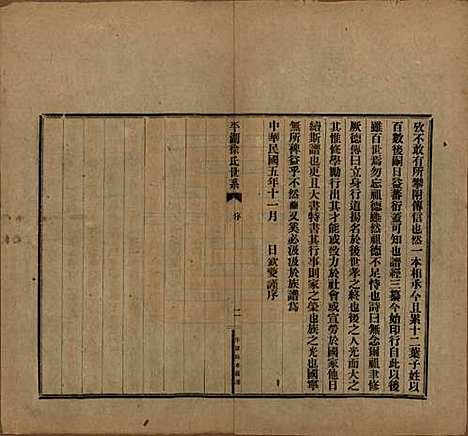 攷不敢有所攀附傳信也然一本相承今且累十二葉子姓以
百數後嗣日益蕃衍蓋可知也譜經三纂今始印行自此以後
雖百世焉勿忘祖德雖然祖德不足恃也詩曰無念爾祖聿修
厥德傳曰立身行道揚名於後世孝之終也後之人光而大之
其惟修學勵行出其才能或致力於社會或宣勞於國家他日
續斯譜也更且大書特書其行事則家之榮也族之光也國寧
無所裨益乎不然又奚必汲汲於族譜爲
中華民國五年十一月 日欽夔謹序
平湖徐氏世系
序
二